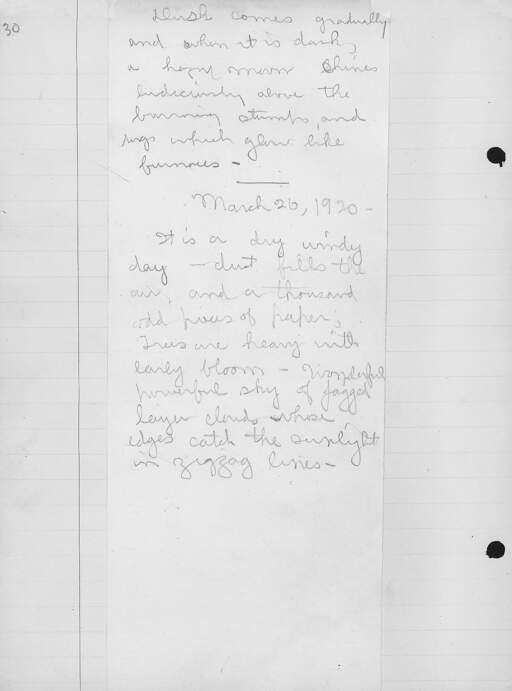 30
Dusk comes gradually
and when it is dark,
a hazy moon shines
ludicrously above the
burning stumps, and
logs which glow like
furnaces -
March 26, 1920 -
It is a dry windy
day - dust fills the
air, and a thousand
odd pieces of paper;
Trees are heavy with
early bloom - Wonderful
powerful sky of jagged
layer clouds whose
edges catch the sunlight
in zigzag lines -